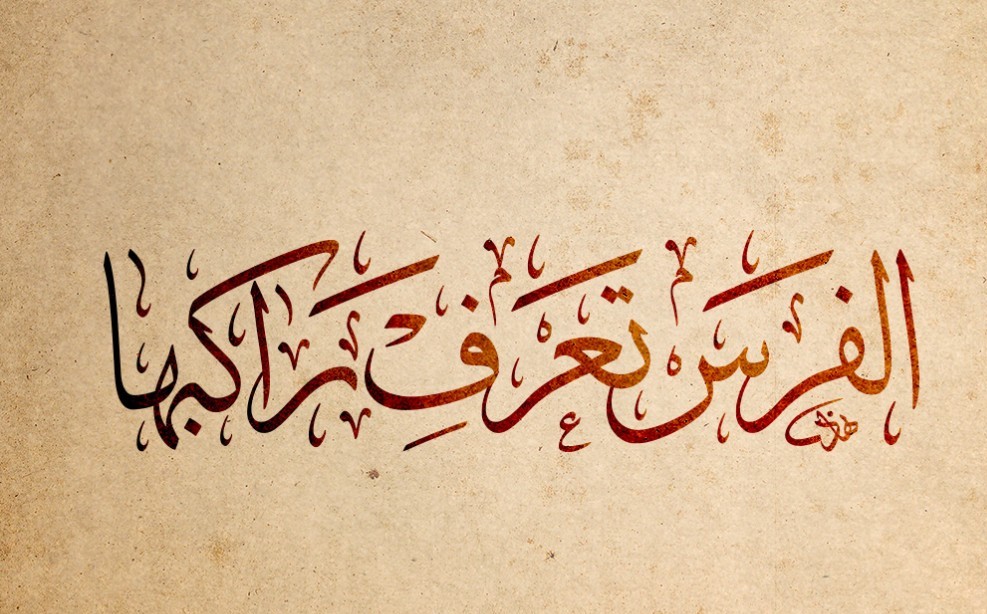 الفرس تعرف راكبها